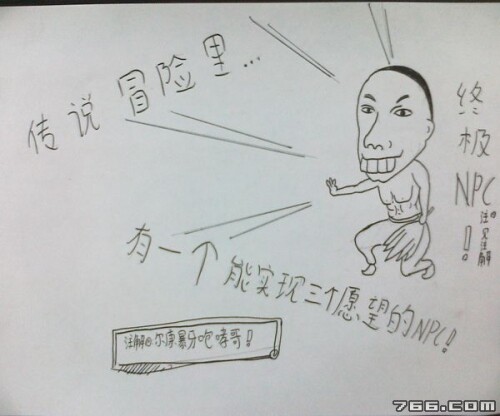 传说冒险里...
终极NPC!
注①见注解
有一个能实现三个愿望的NPC!
注解①尔康暴牙咆哮哥!
766.com